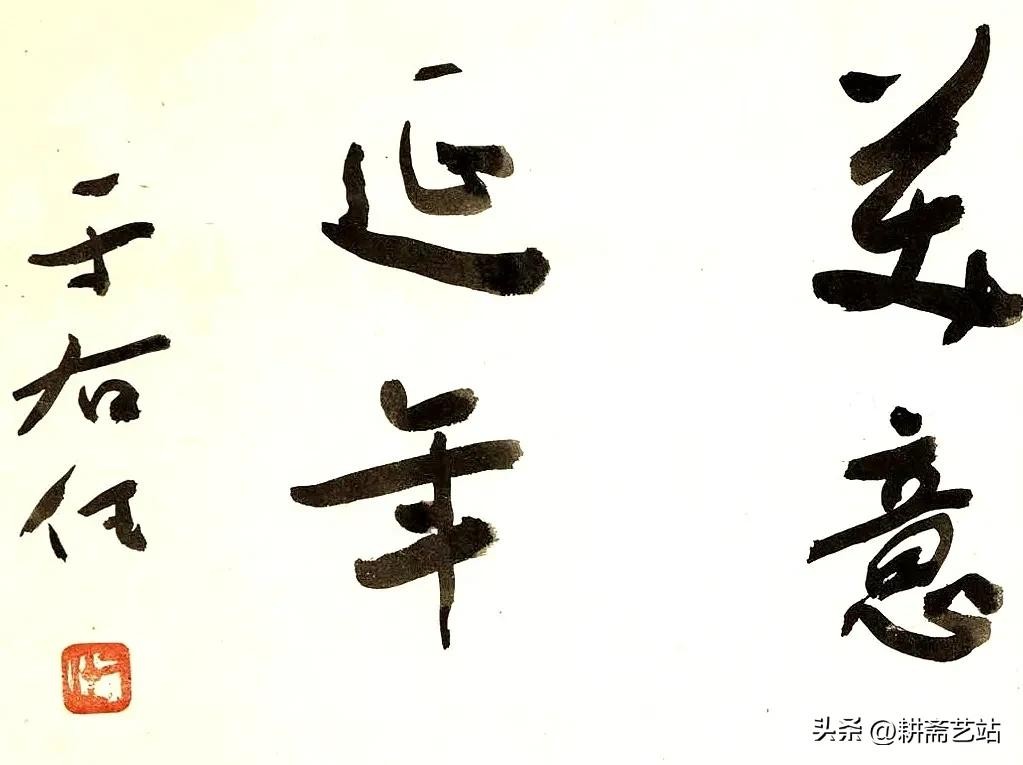 美意
延年
于右任
头条 @耕斋艺站